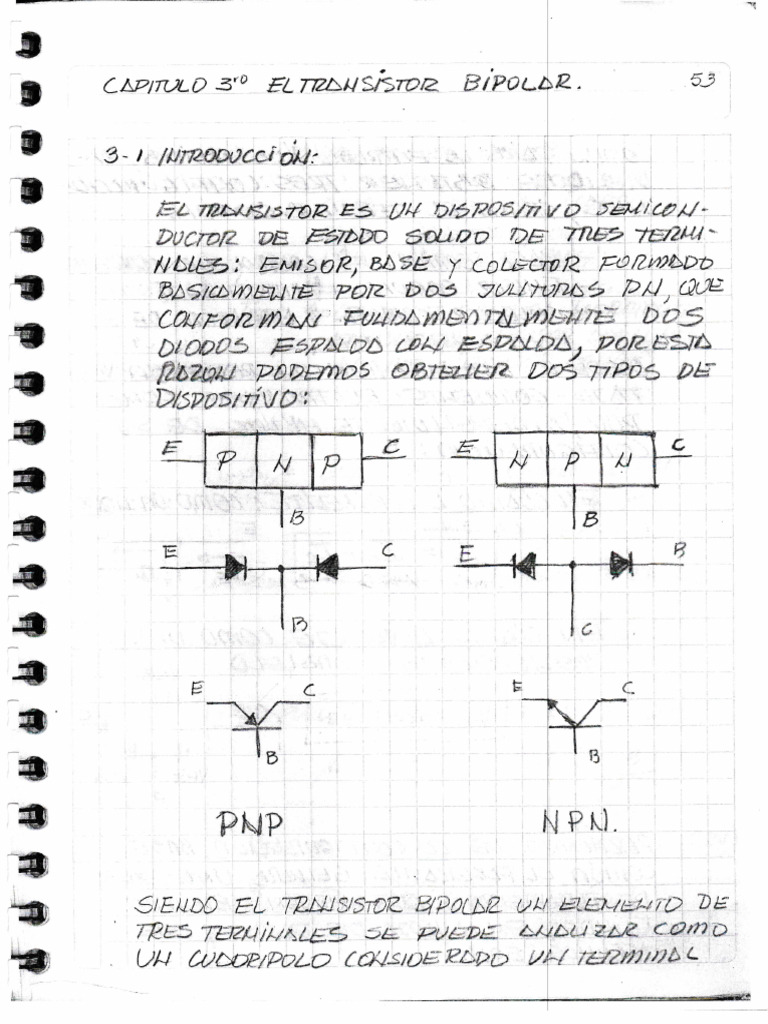 CAPITULO 3ro EL TRANSISTOR BIPOLAR. 53
3-1 INTRODUCCIÓN:
EL TRANSISTOR ES UN DISPOSITIVO SEMICON-
DUCTOR DE ESTADO SOLIDO DE TRES TERMI-
NALES: EMISOR, BASE Y COLECTOR FORMADO
BASICAMENTE POR DOS JUNTURAS PN, QUE
CONFORMAN FUNDAMENTALMENTE DOS
DIODOS ESPALDA CON ESPALDA, POR ESTA
RAZON PODEMOS OBTENER DOS TIPOS DE
DISPOSITIVO:
E P N P C E N P N C
B B
E C E B
B C
E C E C
B B
PNP NPN.
SIENDO EL TRANSISTOR BIPOLAR UN ELEMENTO DE
TRES TERMINALES SE PUEDE ANALIZAR COMO
UN CUADRIPOLO CONSIDERADO UN TERMINAL